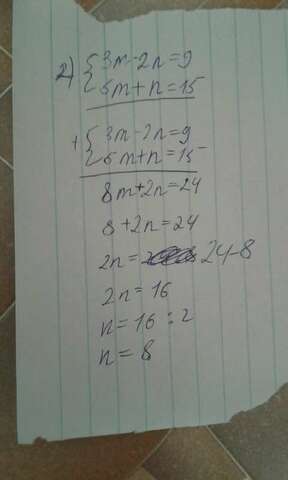 2) { 3m-2n=9
5m+n=15
+ { 3m-2n=9
5m+n=15
8m+2n=24
8+2n=24
2n=2 24-8
2n=16
n=16:2
n=8